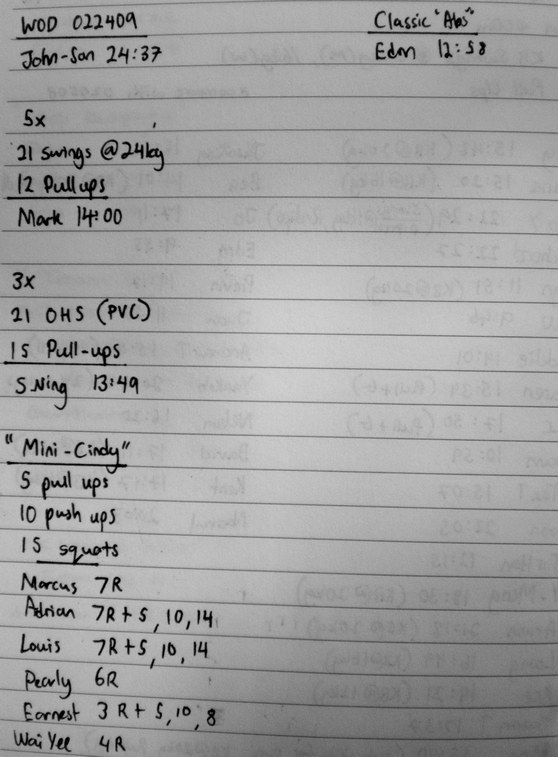 WOD 022409
John-San 24:37
5x
21 Swings @24kg
12 Pullups
Mark 14:00
3x
21 OHS (PVC)
15 Pull-ups
S.Ning 13:49
"Mini-Cindy"
5 pull ups
10 push ups
15 squats
Marcus 7R
Adrian 7R+5, 10, 14
Louis 7R+5, 10, 14
Pearly 6R
Earnest 3R+5, 10, 8
Wai Yee 4R
Classic "Abs"
Edm 12:58